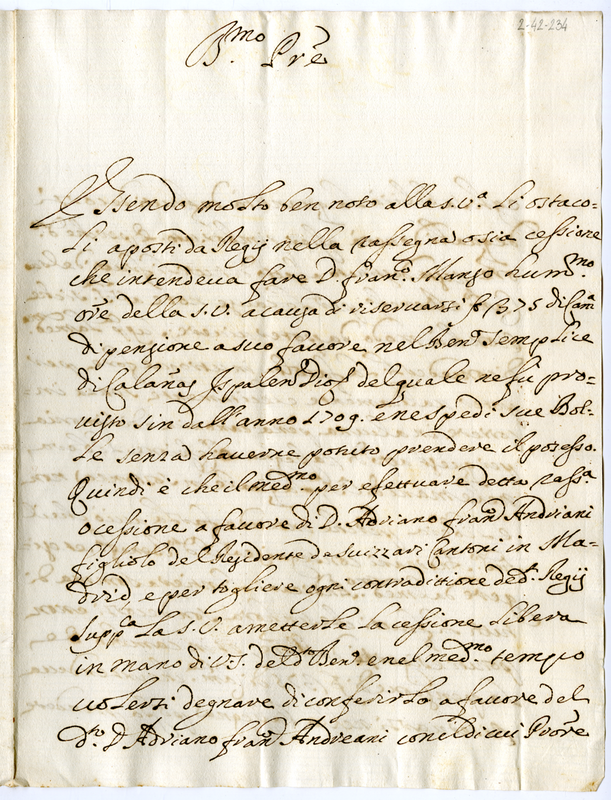 2-42-234
B.mo Pre
Essendo molto ben noto alla S.V.a Li ostaco=
li aposti da Regij nella rassegna o sia cessione
che intendeva fare D. fran.o Manzo hum.mo
ore della S.V. a causa di riservarsi 375 di Cam.a
di penzione a suo favore nel Ben.o Semplice
di Calañas Jspalen Dios del quale ne fù pro=
visto sin dall'anno 1709. e ne spedi sue Bol=
le senza haverne potuto prendere il posesso.
Quindi è che il med.mo per efettuare detta rass.a
o cessione a favore di D. Adriano fran.o Andriani
figliolo del Residente de Suizzari Cantoni in Ma=
drid e per togliere ogni contradittione de d.i Regij
Supp.ca La S.V. ametterle la cessione libera
in mano di V.S. del d.o Ben.o e nel med.mo tempo
volersi degnare di conferirlo a favore del
d.o D Adriano fran.o Andreani con il di cui Prore